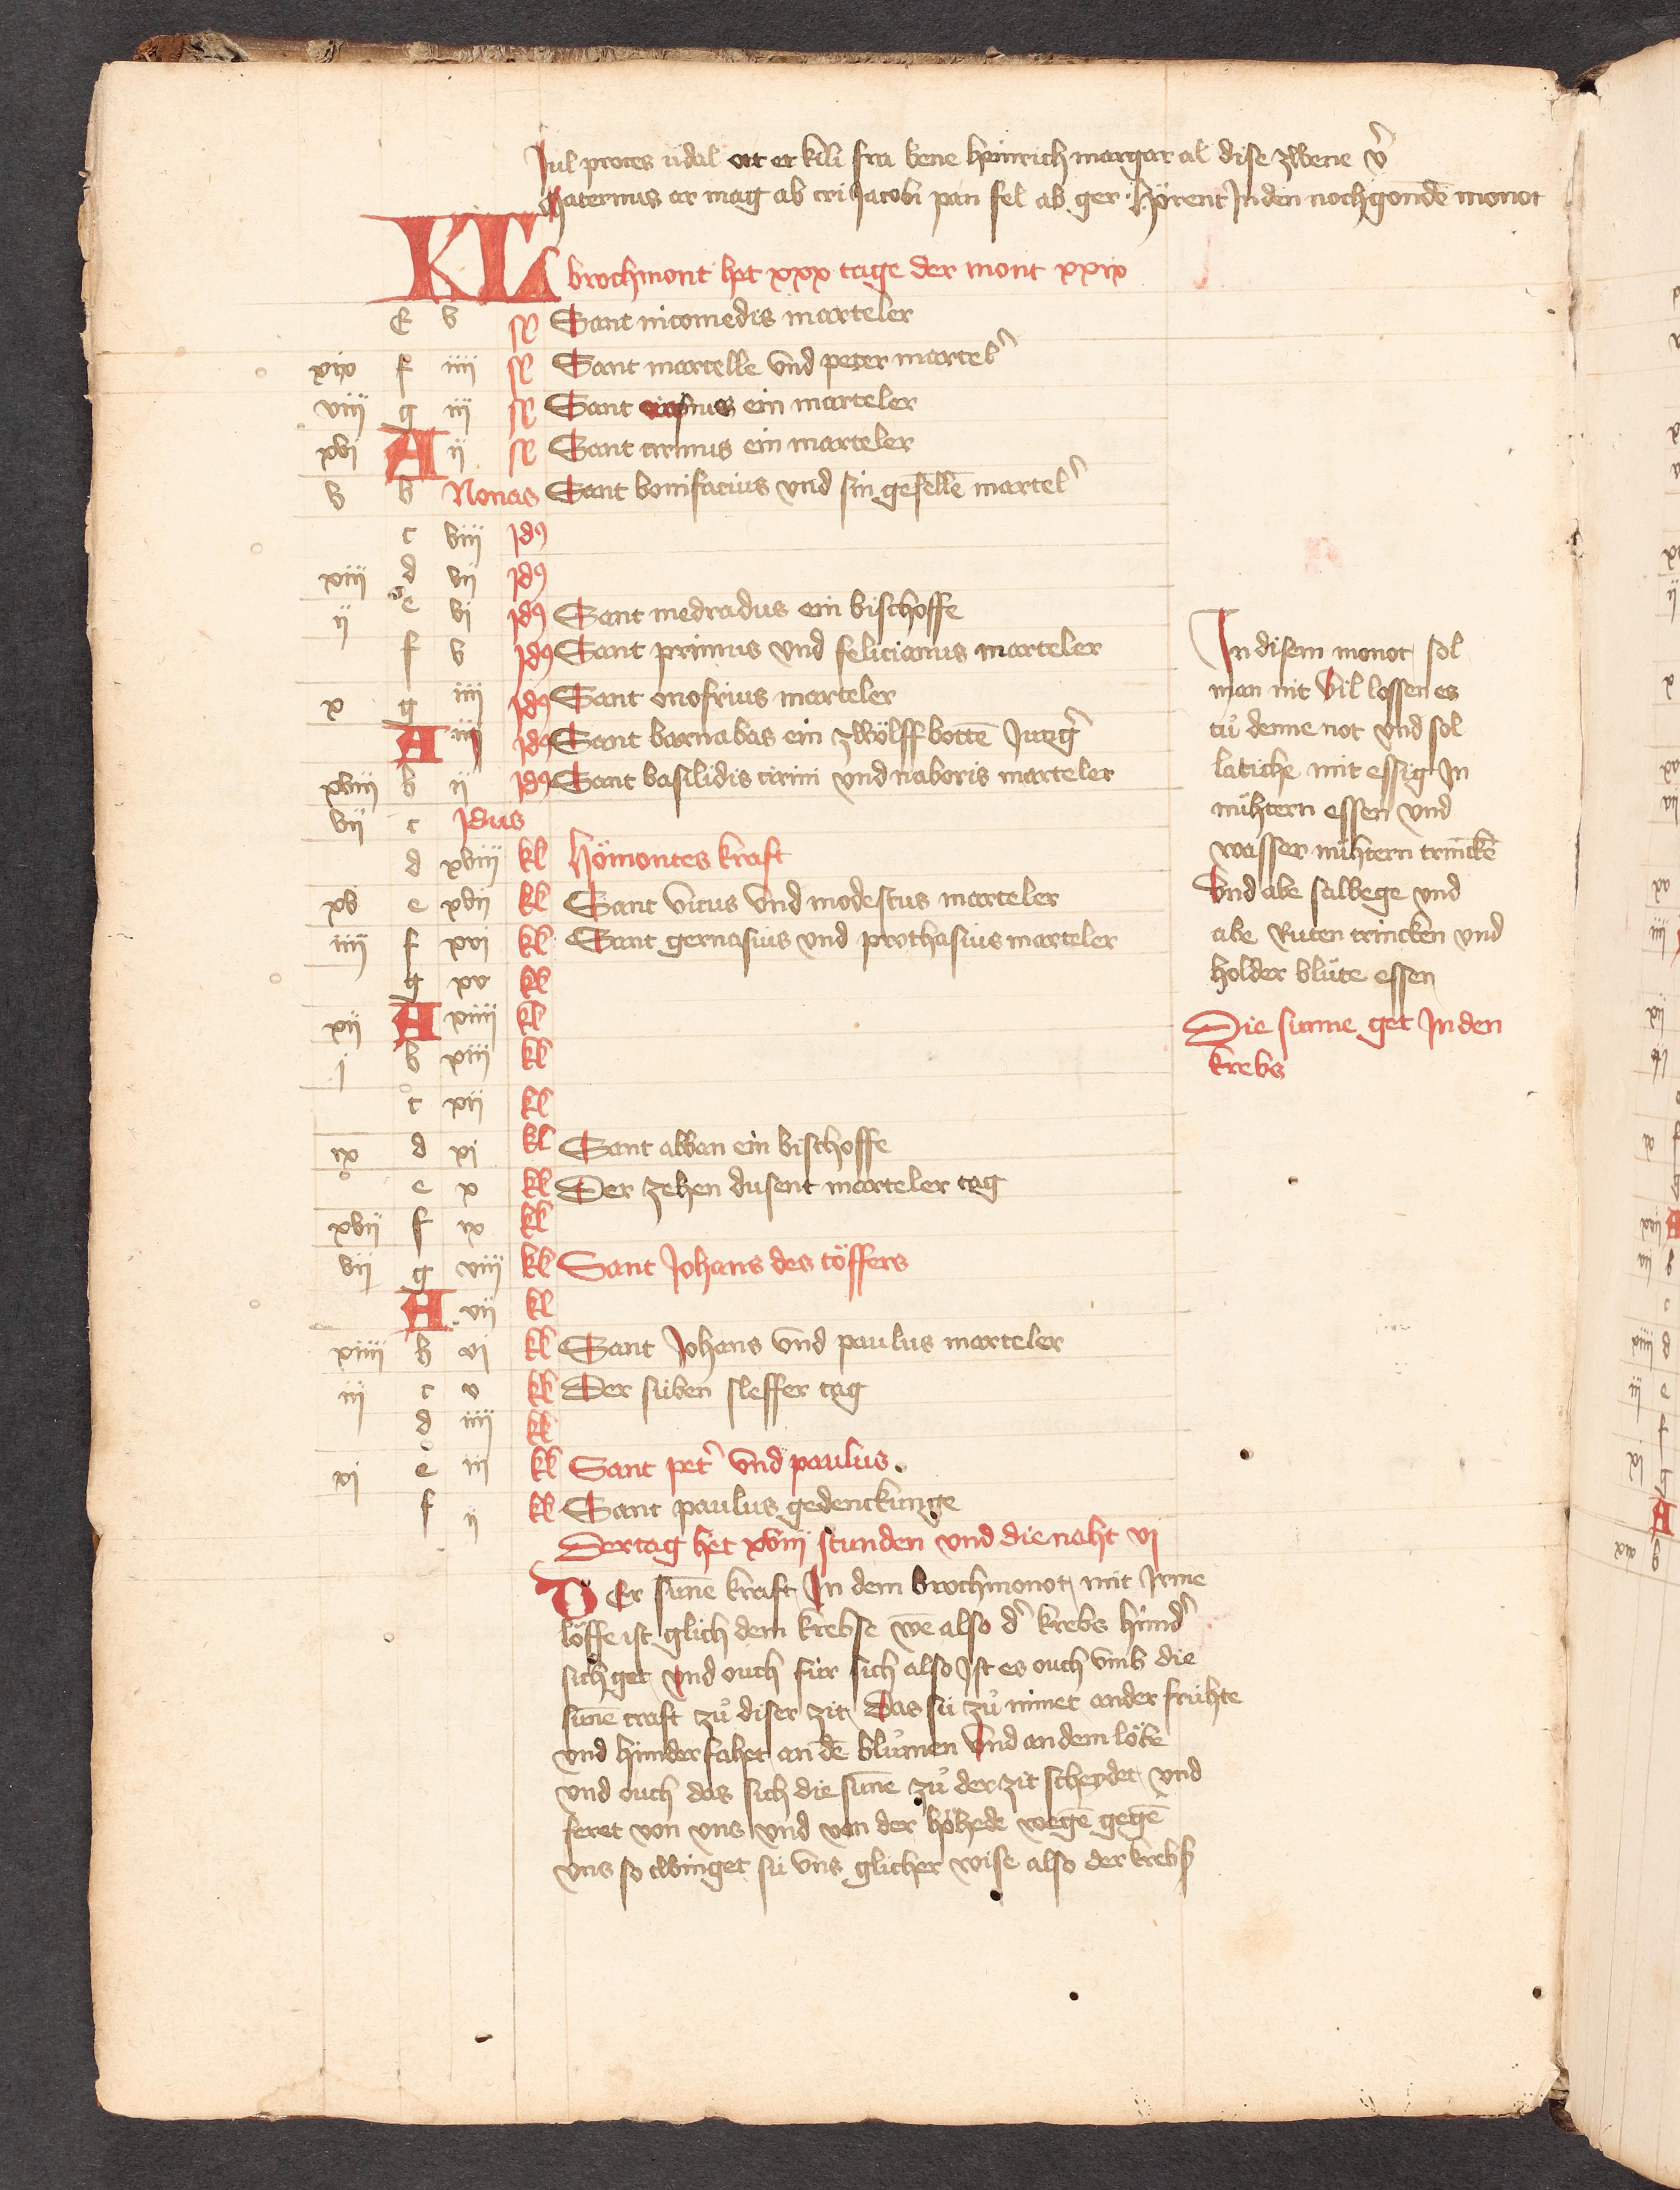 Jul proces údal oct et kili fra bene heinrich margar al dise zwene v̑
Maternus ar mag ab cri Jacobi pan fel ab ger hörent Jn den nochgondē monot
KL brochmont het xxx tage der mont xxix
E v Sant nicomedis marteler
xix f iiii Sant marcelle vnd peter martel᷑
viii g iii Sant erasmus ein marteler
xvi A ii Sant cirinus ein marteler
v b Nonas Sant bonifacius vnd sin gesellē martel᷑
c viii Jdꝰ
xiii d vii Jdꝰ
ii e vi Jdꝰ Sant medradus ein bischoffe
f v Jdꝰ Sant primus vnd felicianus marteler
x g iiii Jdꝰ Sant onofrius marteler
A iii Jdꝰ Sant barnabas ein zwölff bottē
xviii b ii Jdꝰ Sant basilidis cirini vnd naboris marteler
vii c Jdus
d xviii kl Hömontes kraft
xv e xvii kl Sant vitus vnd modestus marteler
iiii f xvi kl Sant gernasius vnd prothasius marteler
g xv kl
xii A xiiii kl
j b xiii kl
c xii kl
ix d xi kl Sant alban ein bischoffe
e x kl Der zehen dusent marteler tag
xvii f ix kl
vii g viii kl Sant Johans des töffers
A vii kl
xiiii b vi kl Sant Johans vnd paulus marteler
iii c v kl Der süben sleffer tag
d iiii kl
xi e iii kl Sant pet᷑ vnd paulus
f ii kl Sant paulus gedenckunge
Der tag het xviii stunden vnd die naht vi
DEr sunē kraft Jn dem brochmonot mit Jrme
löffe ist glich dem krebse wē also d᷑ krebs hind᷑
sich get vnd ouch für sich also Jst es ouch vmb die
sunē craft zů diser zit Das sü zů nimet an der frühte
vnd hinder fahet an dē blůmen Vnd an dem löbe
vnd ouch das sich die sunē zů der zit scheydet vnd
feret von vns vnd von der höhede wegē gegē
vns so twinget sü vns glicher wise also der krebß
Jn disem monot sol
man nit vil lossen es
tů denne not vnd sol
latiche mit essig Jn
nühtern essen vnd
wasser nühtern trinckē
Vnd abe salbege vnd
abe Ruten trincken vnd
holder blüte essen
Die sunne get Jn den
krebs